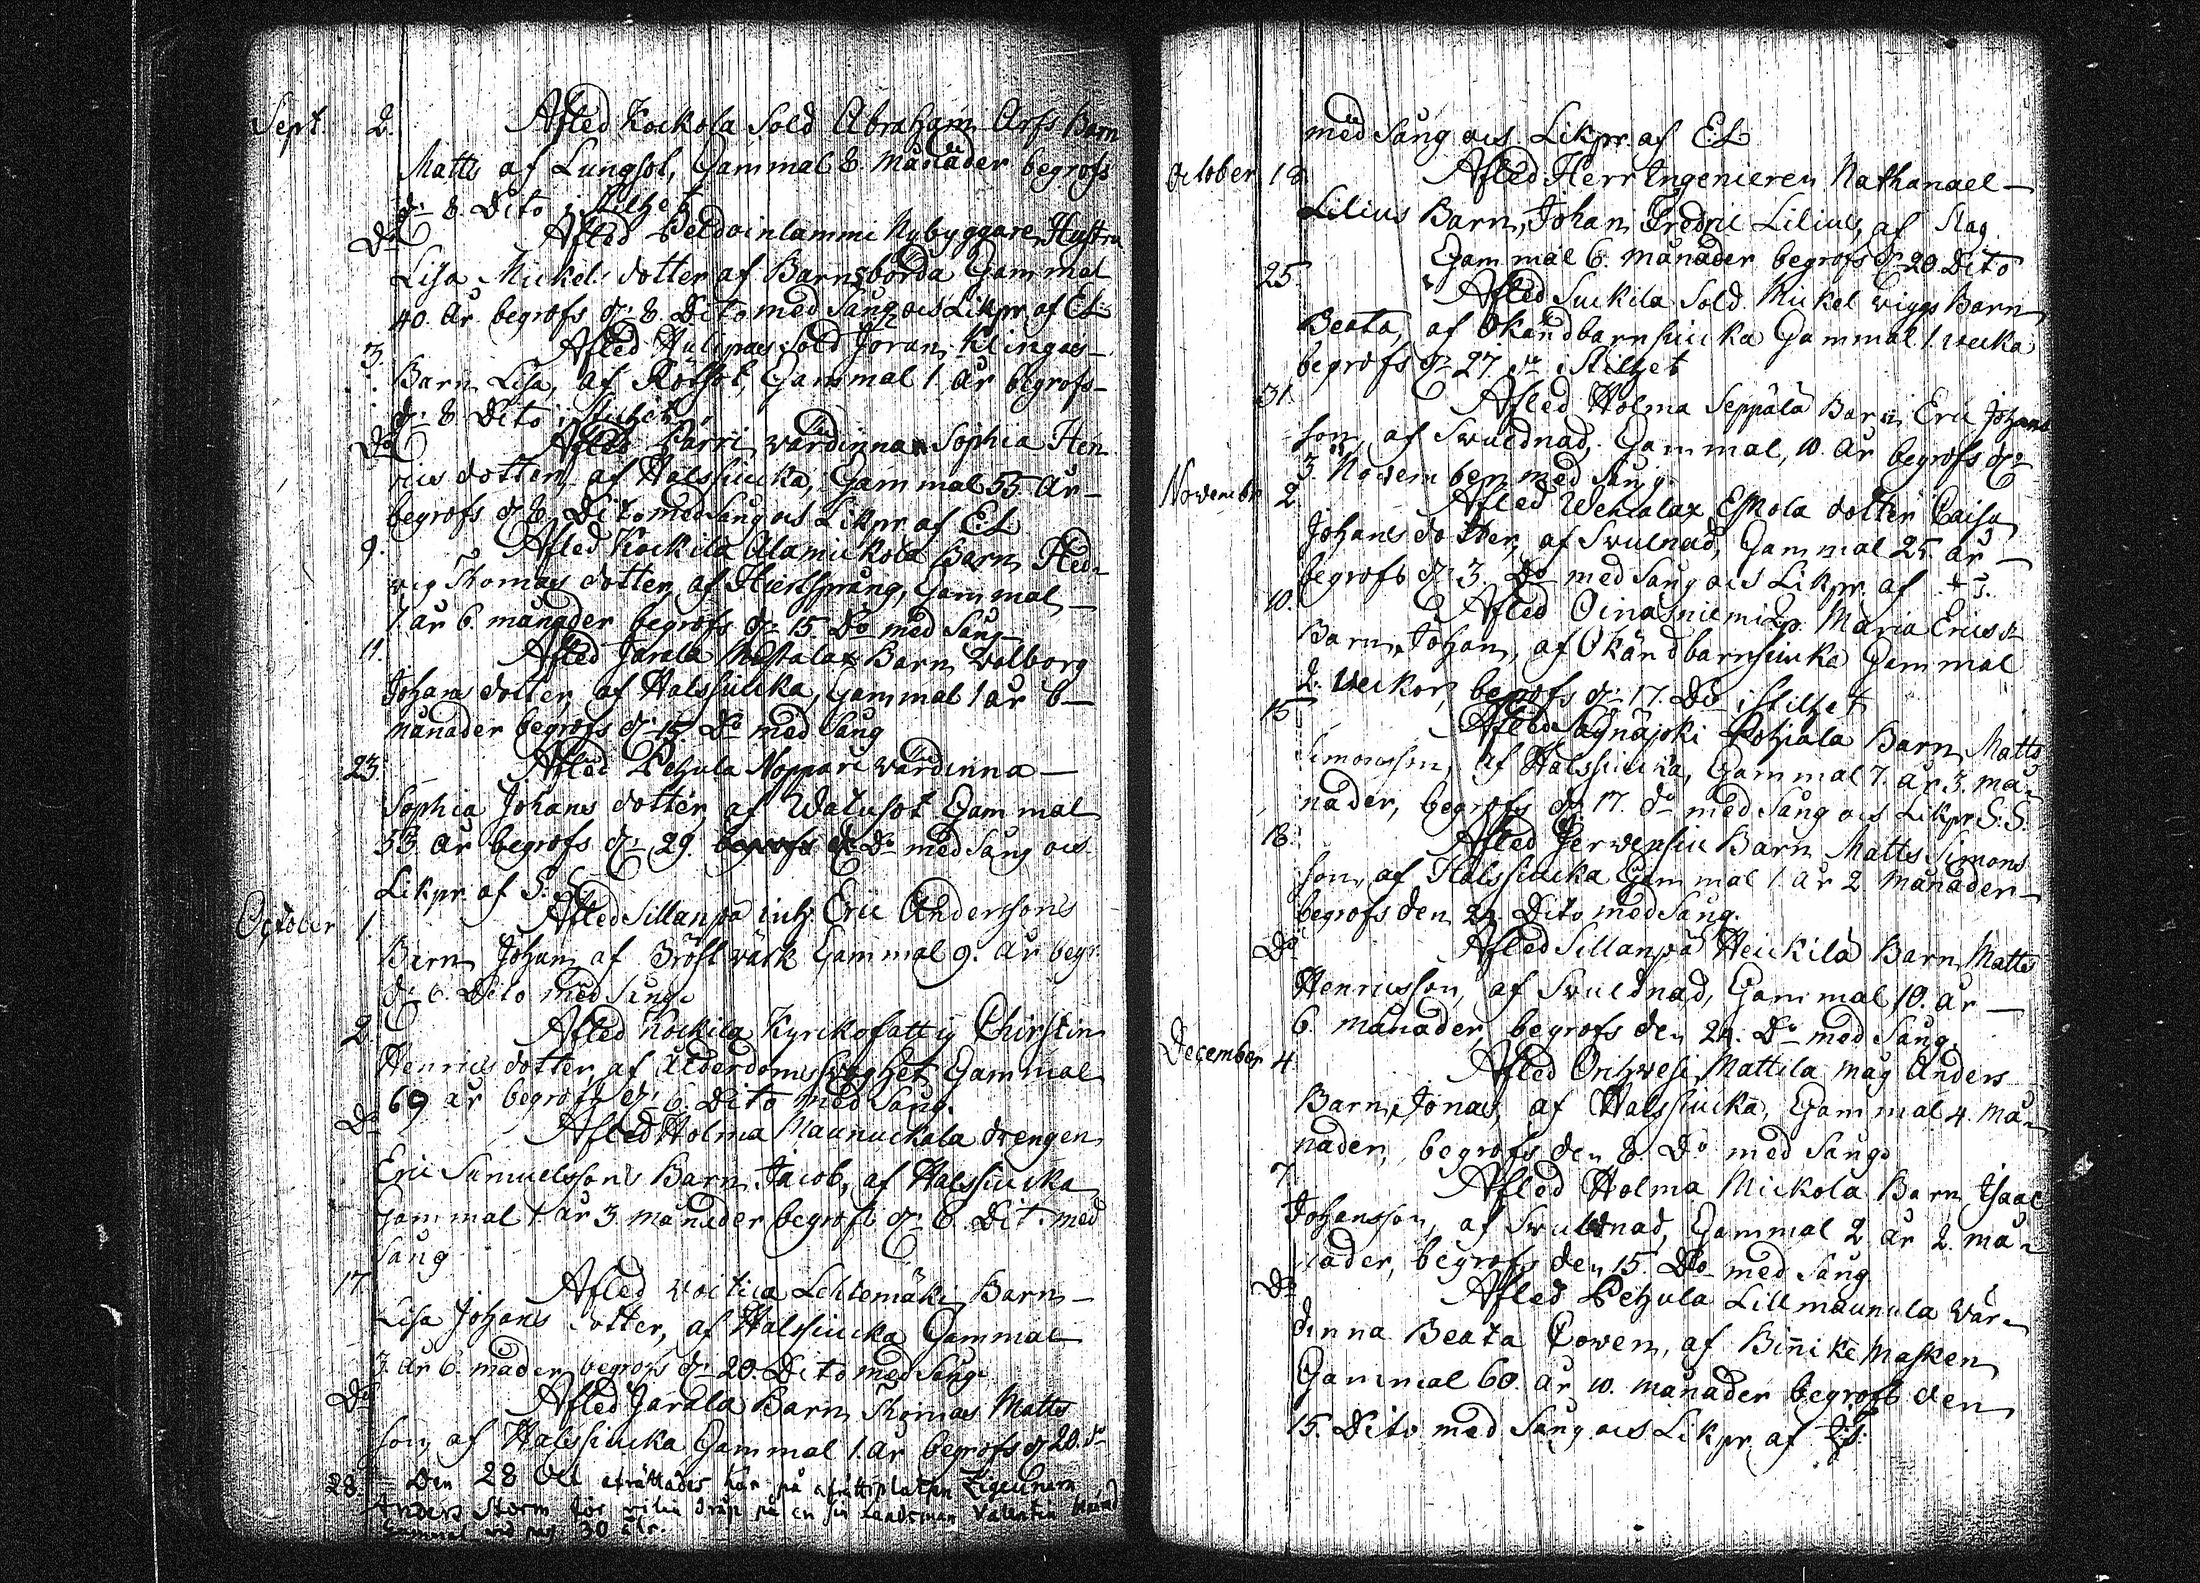 Sept. 2. Afled Kockola Sold Abraham Arfs Barn
Matts af Lungsot, Gammal 8. månader begrofs
dn 8. Dito i stilhet
Do Afled Peldoinlammi Nybyggaren Hustru
Lisa Mickels dotter af Barnsbörda Gammal
40. År begrofs dn 8. Dito med Sång och Likpr af EL
3. Afled Hulipas Sold Jöran Klingas
Barn Lisa, af Rötsot, Gammal 1 År begrofs
dn 8 Dito i stilhet
Do Afled Pärri värdinna Sophia Hen
rics dotter, af Halssiucka, Gammal 55 År
begrofs d 8. Dito med Sång och Likpr. af E.L
9. Afled Kockila Alamickola Barn Hed=
vig Thomas dotter, af Hiertsprång, Gammal
1. år 6. månader begrofs dn 15. Do med Sång
11. Afled Jarala Barn Walborg
Johans dotter, af Halssiucka, Gammal 1 år 6
månader begrofs dn 15. Do med Sång
23. Afled Pehula Noppari värdinna
Sophia Johans dotter, af Gammal
53. år begrofs dn 29. begrofs d Do med Sång och
Likpr. af S. S.
October 1. Afled Sillanpä inh. Eric Anderssons
Barn Johan af Bröstvärk Gammal 9. år begr.
dn 6. Dito med Sång
2. Afled Kockila Kyrkofattig Chirstin
Henrics dotter, af Ålderdomssvaghet Gammal
69 år begrofs dn 6 Dito med Sång.
Do Afled Holma Maunuckala drengen
Eric Samuelssons Barn Jacob, af Halssiucka
Gammal 1. år 3. månader begrofs dn 6. Dit. med
Sång
17. Afled Voitica Lehtemäki Barn
Lisa Johans dotter, af Halssiucka Gammal
3. år 6. måder begrofs dn 20. Dito med Sång
Do Afled Jarala Barn Thomas Matts
son af Halssiucka Gammal 1. år begrofs d 20. do
28. Den 28 Oct afrättades här på afrättsplatsen Zigeunern
Anders Storm för dråp på en sin landsman Valentin
Gammal vid pass 30 år.
med Sång och Likpr. af E.L
October 18 Afled Herr Ingenieren Nathanael
Lilius Barn, Johan Fredric Lilius, af Slag
Gammal 6. månader begrofs dn 20. Dito
25 Afled Suckila Sold. Mickel Viggs Barn
Beata, af Okändbarnsiucka Gammal 1. vecka
begrofs dn 27. do i Stilhet
31. Afled Holma Seppälä Barn Eric Johans
son, af Swulnad. Gammal, 10. År begrofs dn
3. November med Sång.
Novembr. 2. Afled Wehialax Eskola dotter Caisa
Johans dotter, af Swulnad, Gammal 25. år
begrofs dn 3. Do med Sång och Likpr. af
10. Afled Oinasniemi Maria Erics dr
Barn Johan, af Okändbarnsiucka Gammal
2. Veckor, begrofs dn 17. Do i Stilhet
15 Afled Pohiala Barn, Matts
Simonsson, af Halssiucka, Gammal 7. år 3. må=
nader, begrofs dn 17. do med Sång och Likpr S.S.
18. Afled Jervensiu Barn Matts Simons
son, af Halssiucka Gammal 1. År 2. månader
begrofs den 24. Dito med Sång.
Do Afled Sillanpä Heickilä Barn Matts
Henricsson, af Swulnad, Gammal 10. år
6. månader, begrofs den 24. Do med Sång.
December 4. Afled Orihwesi Mattila måg Anders
Barn Jonas, af Halssiucka, Gammal 4. må=
nader, begrofs den 8. Do med Sång
7. Afled Holma Mickola Barn Isaac
Johansson, af Swulnad, Gammal 2. år 2. må=
nader, begrofs den 15. Do med Sång
Do Afled Pehula Lillmaunula Vär=
dinna Beata Cowen, af Binnike Masken
Gammal 60. år 10. månader begrofs den
15. Dito med Sång och Likpr af